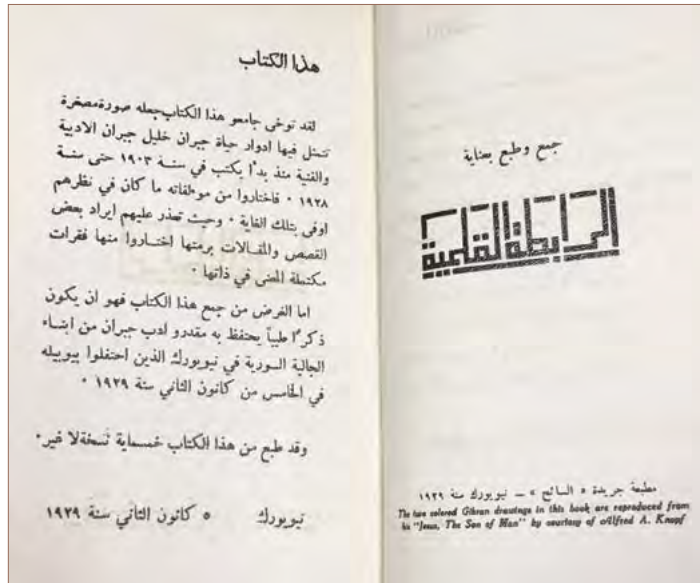 جمع وطبع بعناية
الرابطة القلمية
مطبعة جريدة «السائح» – نيويورك سنة ١٩٢٩
The two colored Gibran drawings in this book are reproduced from
his "Jesus, The Son of Man" by courtesy of Alfred A. Knopf
هذا الكتاب
لقد توخى جامعو هذا الكتاب جعله صورة مصغرة
تتمثل فيها ادوار حياة جبران خليل جبران الادبية
والفنية منذ بدأ يكتب في سنة ١٩٠٣ حتى سنة
١٩٢٨ · فاختاروا من موءلفاته ما كان في نظرهم
اوفى بتلك الغاية · وحيث تعذر عليهم ايراد بعض
القصص والمقالات برمتها اختاروا منها فقرات
مكتملة المعنى في ذاتها ·
اما الغرض من جمع هذا الكتاب فهو ان يكون
ذكرًا طيباً يحتفظ به مقدرو ادب جبران من ابناء
الجالية السورية في نيويورك الذين احتفلوا بيوبيله
في الخامس من كانون الثاني سنة ١٩٢٩ ·
وقد طبع من هذا الكتاب خمسماية نسخة لا غير·
نيويورك ٥ كانون الثاني سنة ١٩٢٩